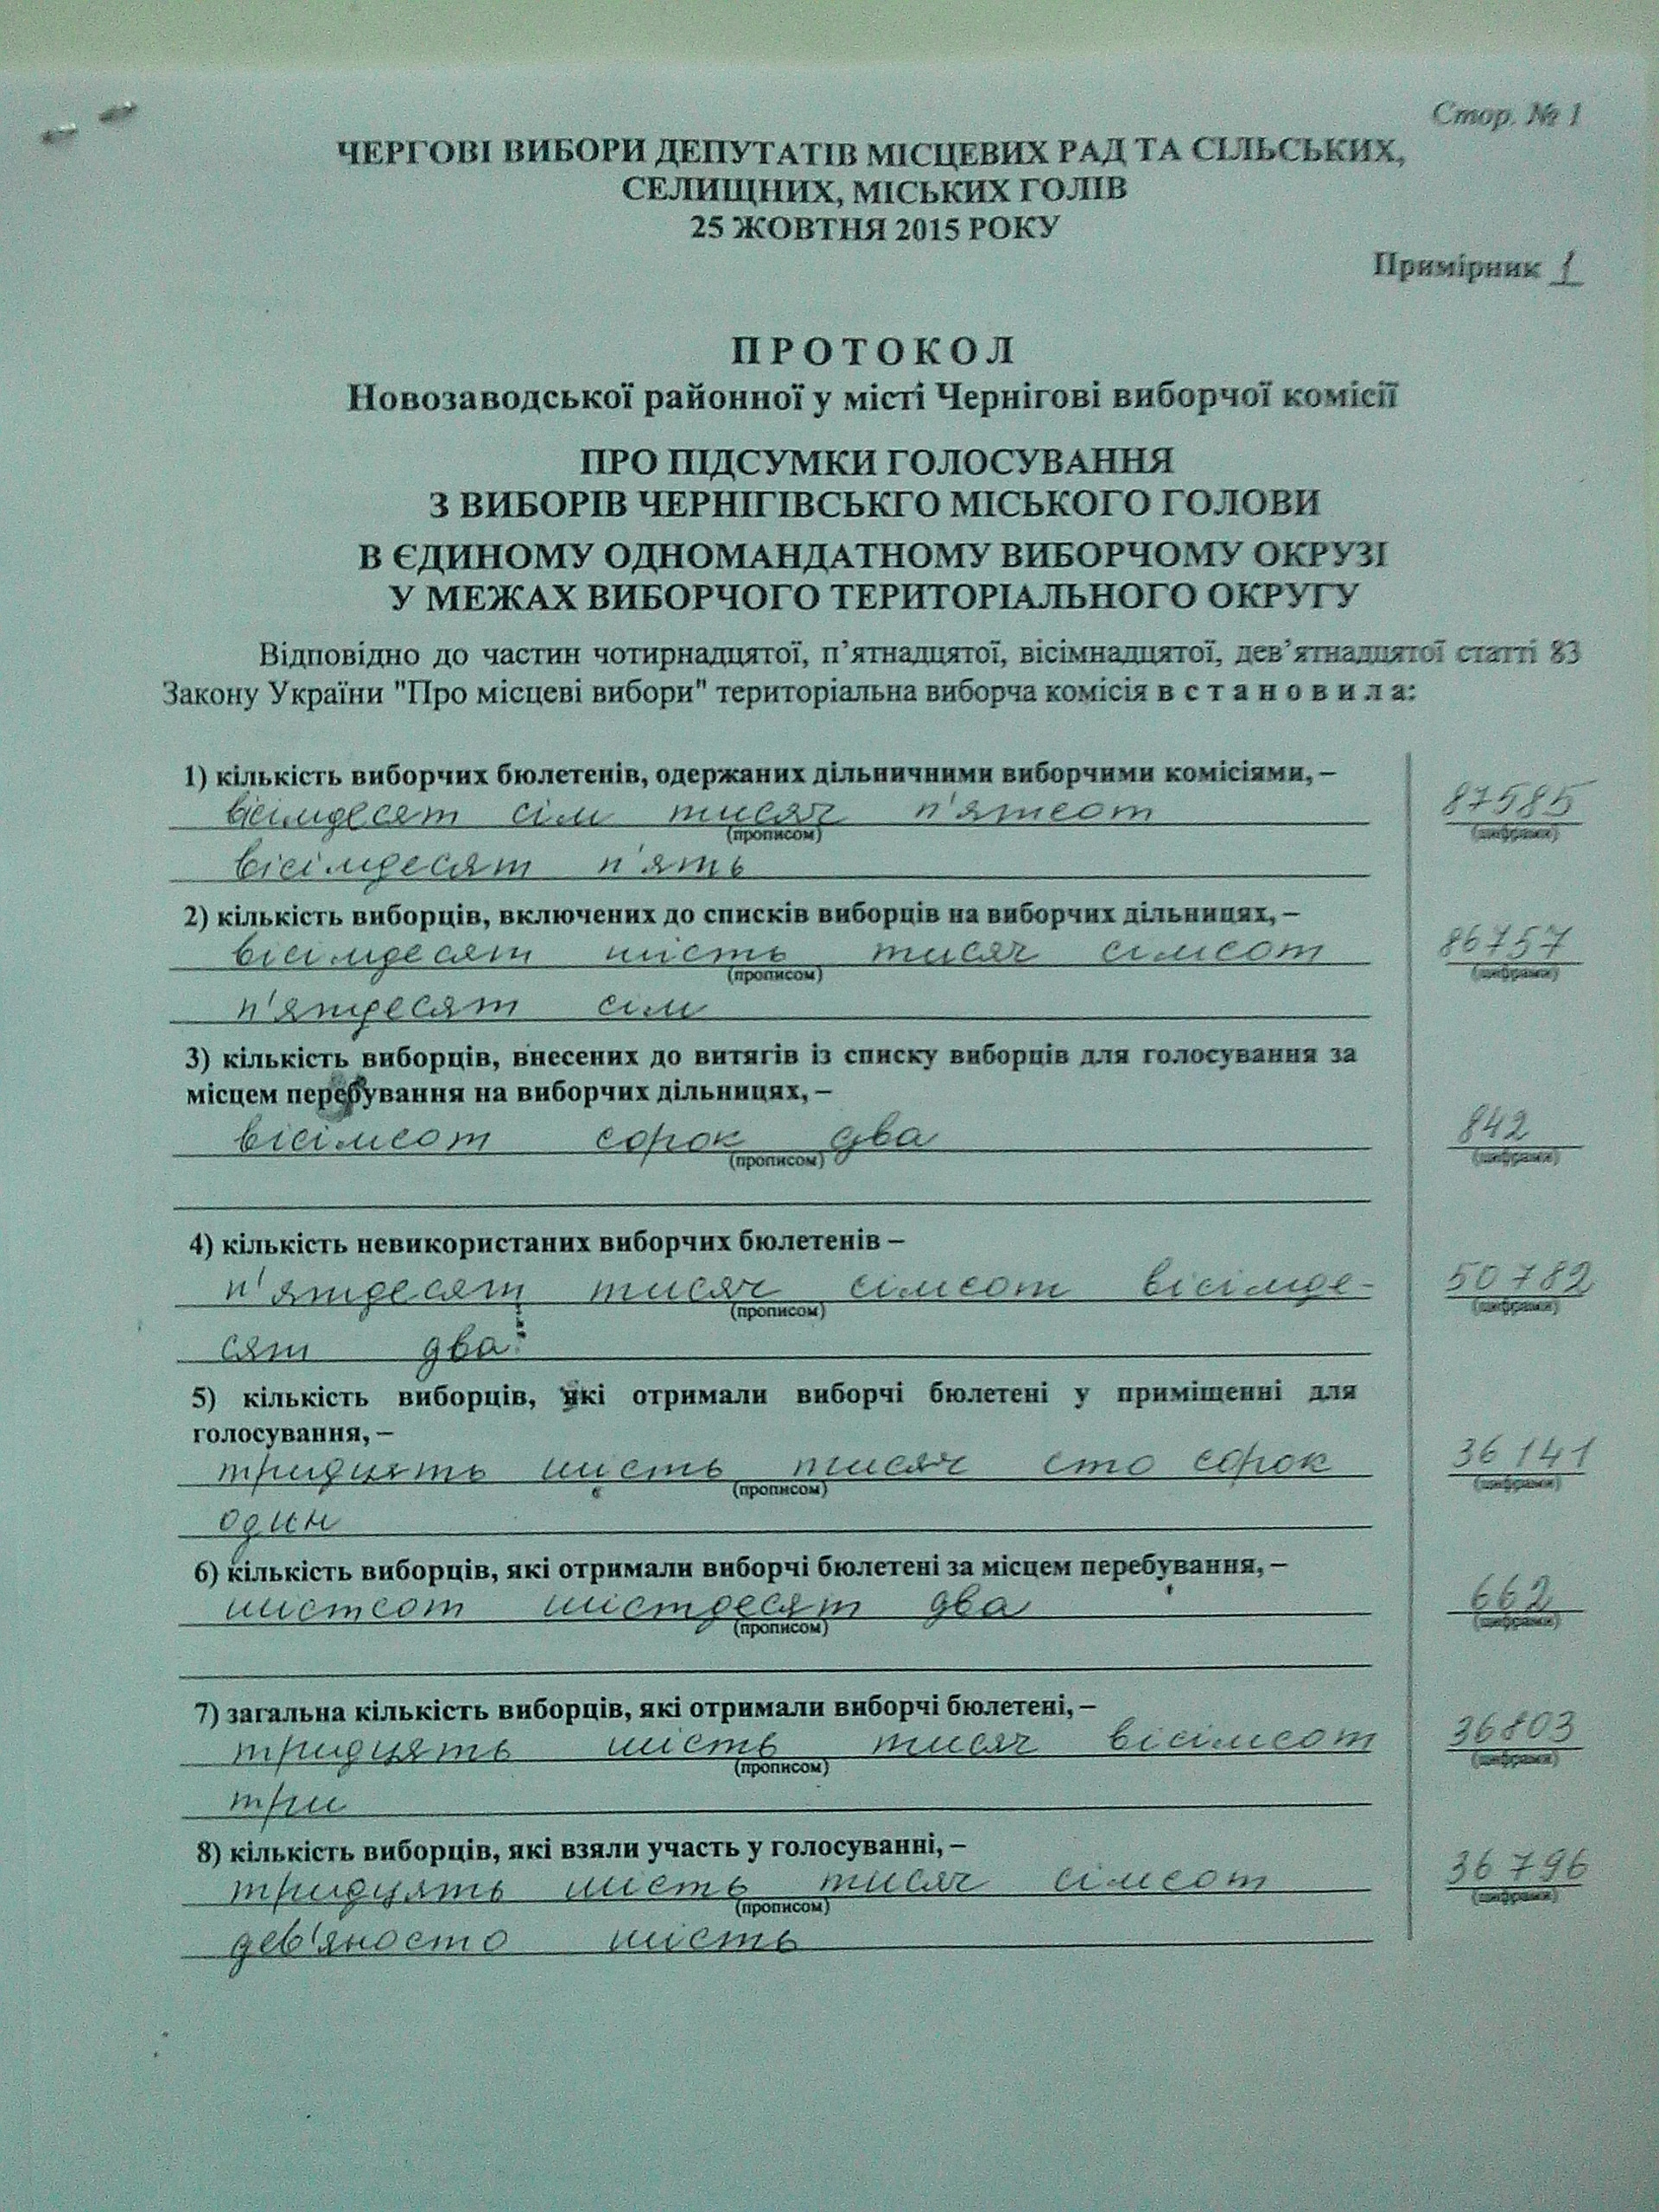 Стор. № 1
ЧЕРГОВІ ВИБОРИ ДЕПУТАТІВ МІСЦЕВИХ РАД ТА СІЛЬСЬКИХ,
СЕЛИЩНИХ, МІСЬКИХ ГОЛІВ
25 ЖОВТНЯ 2015 РОКУ
Примірник 1
П Р О Т О К О Л
Новозаводської районної у місті Чернігові виборчої комісії
ПРО ПІДСУМКИ ГОЛОСУВАННЯ
З ВИБОРІВ ЧЕРНІГІВСЬКГО МІСЬКОГО ГОЛОВИ
В ЄДИНОМУ ОДНОМАНДАТНОМУ ВИБОРЧОМУ ОКРУЗІ
У МЕЖАХ ВИБОРЧОГО ТЕРИТОРІАЛЬНОГО ОКРУГУ
Відповідно до частин чотирнадцятої, п’ятнадцятої, вісімнадцятої, дев’ятнадцятої статті 83
Закону України "Про місцеві вибори" територіальна виборча комісія в с т а н о в и л а:
1) кількість виборчих бюлетенів, одержаних дільничними виборчими комісіями, –
вісімдесят сім тисяч п'ятсот 87585
(прописом) (цифрами)
вісімдесят п'ять
2) кількість виборців, включених до списків виборців на виборчих дільницях, –
вісімдесят шість тисяч сімсот 86757
(прописом) (цифрами)
п'ятдесят сім
3) кількість виборців, внесених до витягів із списку виборців для голосування за
місцем перебування на виборчих дільницях, –
вісімсот сорок два 842
(прописом) (цифрами)
4) кількість невикористаних виборчих бюлетенів –
п'ятдесят тисяч сімсот вісімде- 50782
(прописом) (цифрами)
сят два
5) кількість виборців, які отримали виборчі бюлетені у приміщенні для
голосування, –
тридцять шість тисяч сто сорок 36141
(прописом) (цифрами)
один
6) кількість виборців, які отримали виборчі бюлетені за місцем перебування, –
шістсот шістдесят два 662
(прописом) (цифрами)
7) загальна кількість виборців, які отримали виборчі бюлетені, –
тридцять шість тисяч вісімсот 36803
(прописом) (цифрами)
три
8) кількість виборців, які взяли участь у голосуванні, –
тридцять шість тисяч сімсот 36796
(прописом) (цифрами)
дев'яносто шість